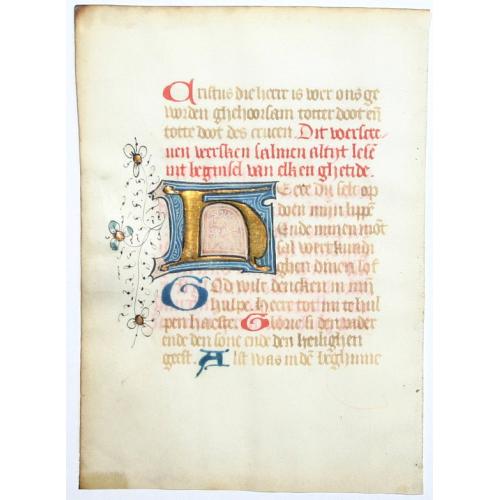 Cristus die heer is voer ons ge
worden ghehoorsam totter doot eñ
totte doot des crucen. Dit voerscre
uen veersken salmen altijt lesē
int beginsel van elken ghetide.
Heere du selt op
doen mijn lippē
Ende minen mōt
sal voertkundi
ghen dinen lof
God wilt dencken in mijn
hulpe. Heere tot mi te hul
pen haeste. Glorie si den vader
ende den sone ende den heilighen
geest. Alst was in dē beghinne